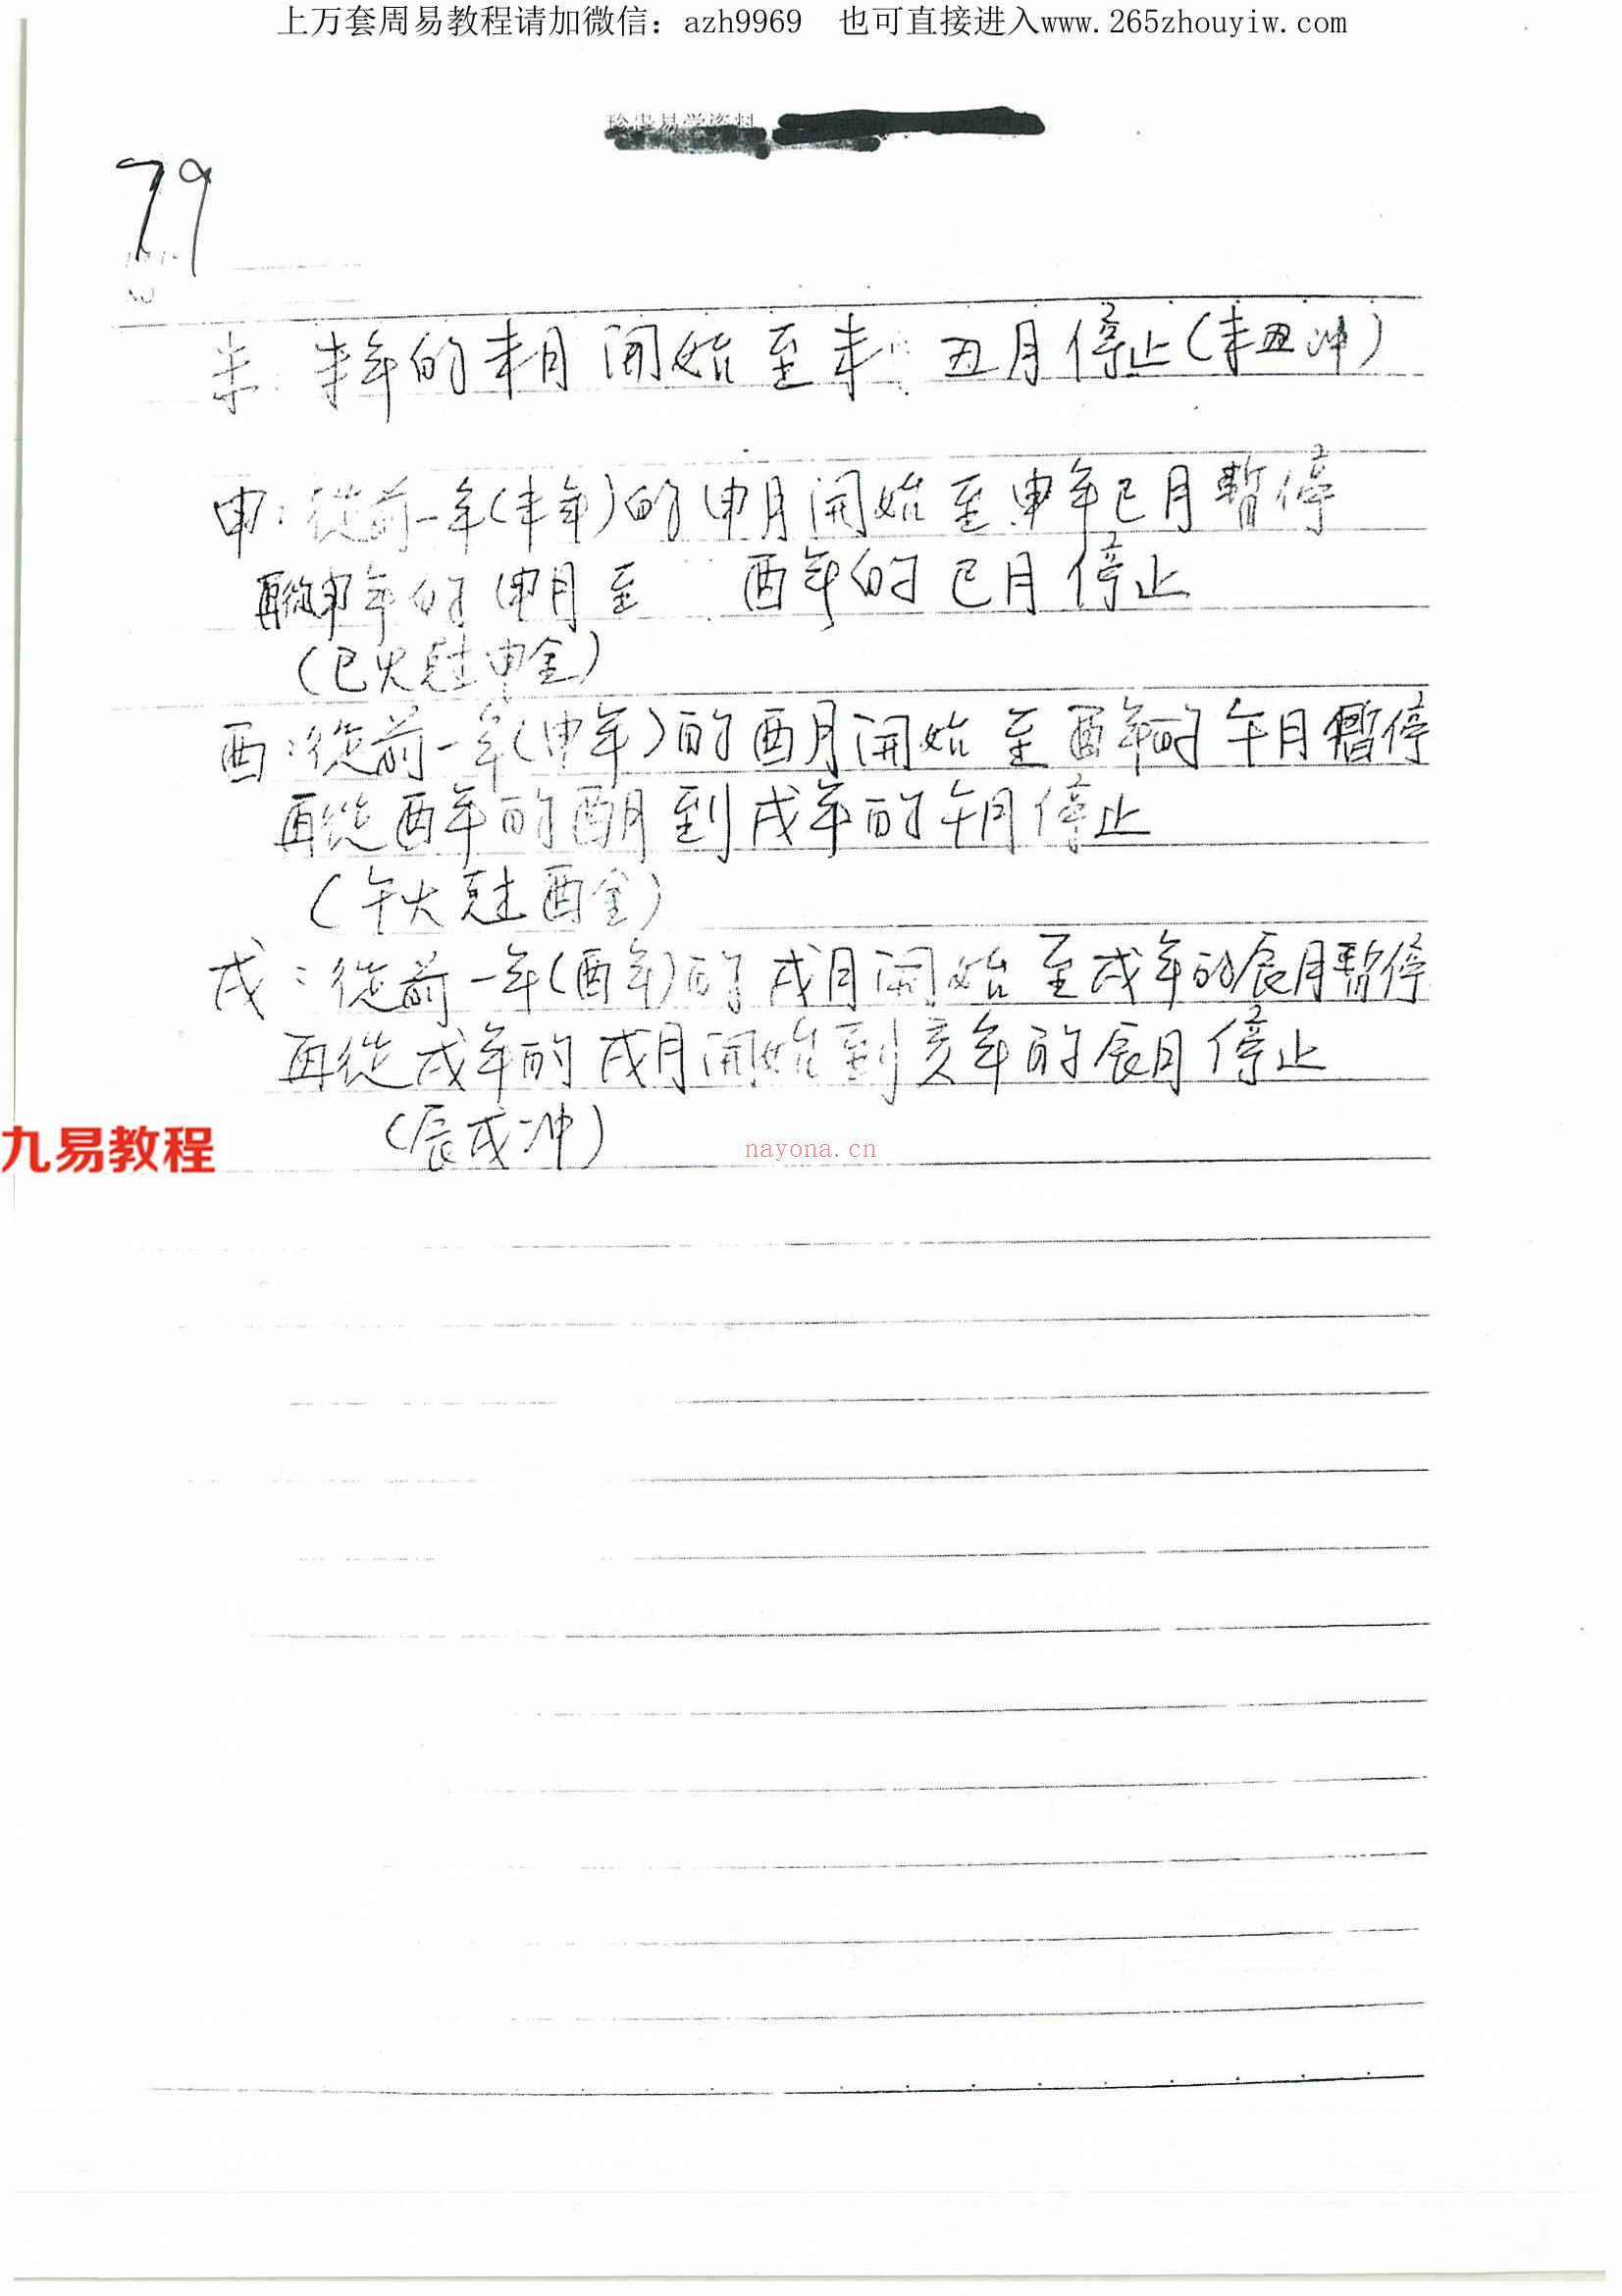 上万套周易教程请加微信：azh9969　也可直接进入www.265zhouyiw.com
79
未 未年的未月開始至未 丑月停止(未丑冲)
申：從前一年(未年)的申月開始至申年巳月暫停
再從申年的申月至 酉年的巳月停止
(巳火尅申金)
酉：從前一年(申年)的酉月開始至酉年的午月暫停
再從酉年的酉月到戌年的午月停止
(午火尅酉金)
戌：從前一年(酉年)的戌月開始至戌年的辰月暫停
再從戌年的戌月開始到亥年的辰月停止
(辰戌冲)
九易教程
nayona.cn